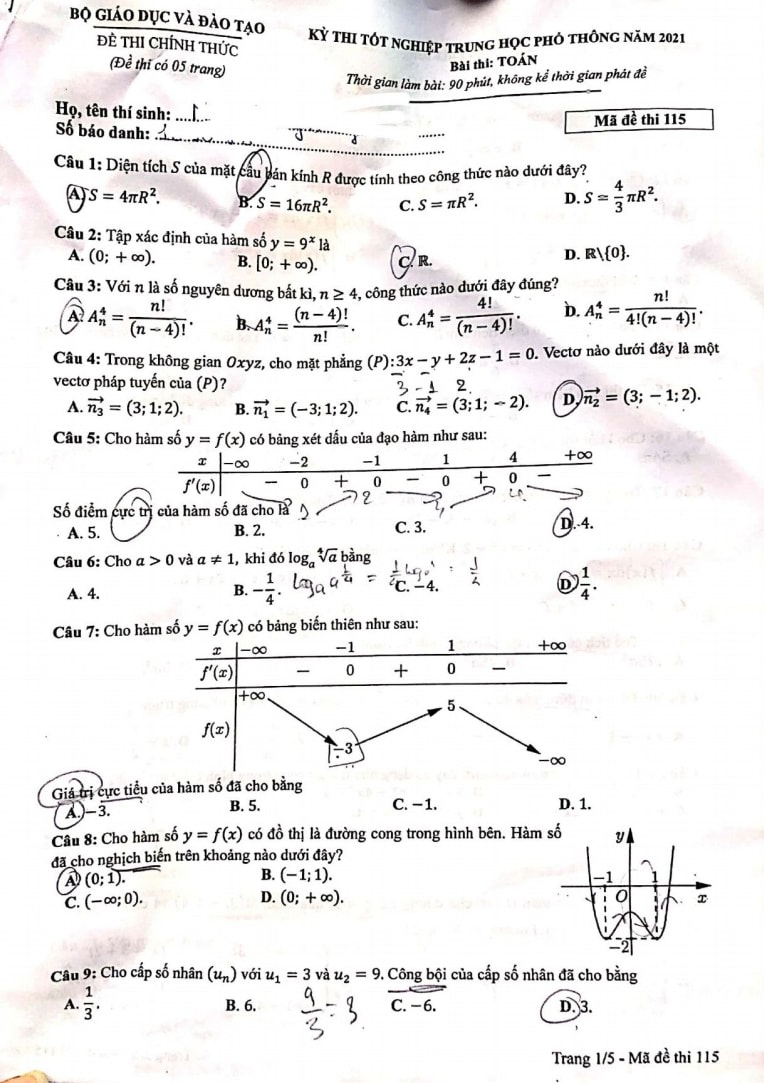 BỘ GIÁO DỤC VÀ ĐÀO TẠO
ĐỀ THI CHÍNH THỨC
(Đề thi có 05 trang)
KỲ THI TỐT NGHIỆP TRUNG HỌC PHỔ THÔNG NĂM 2021
Bài thi: TOÁN
Thời gian làm bài: 90 phút, không kể thời gian phát đề
Họ, tên thí sinh:
Số báo danh:
Mã đề thi 115
Câu 1: Diện tích S của mặt cầu bán kính R được tính theo công thức nào dưới đây?
A. S = 4πR². B. S = 16πR². C. S = πR². D. S = 4/3 πR².
Câu 2: Tập xác định của hàm số y = 9ˣ là
A. (0; +∞). B. [0; +∞). C. ℝ. D. ℝ\{0}.
Câu 3: Với n là số nguyên dương bất kì, n ≥ 4, công thức nào dưới đây đúng?
A. A_n^4 = n!/(n − 4)!. B. A_n^4 = (n − 4)!/n!. C. A_n^4 = 4!/(n − 4)!. D. A_n^4 = n!/4!(n − 4)!.
Câu 4: Trong không gian Oxyz, cho mặt phẳng (P): 3x − y + 2z − 1 = 0. Vectơ nào dưới đây là một
vectơ pháp tuyến của (P)?
3 -1 2
A. n₃ = (3; 1; 2). B. n₁ = (−3; 1; 2). C. n₄ = (3; 1; −2). D. n₂ = (3; −1; 2).
Câu 5: Cho hàm số y = f(x) có bảng xét dấu của đạo hàm như sau:
x −∞ −2 −1 1 4 +∞
f′(x) − 0 + 0 − 0 + 0 −
Số điểm cực trị của hàm số đã cho là
A. 5. B. 2. C. 3. D. 4.
Câu 6: Cho a > 0 và a ≠ 1, khi đó logₐ ⁴√a bằng
A. 4. B. −1/4. C. −4. D. 1/4.
Câu 7: Cho hàm số y = f(x) có bảng biến thiên như sau:
x −∞ −1 1 +∞
f′(x) − 0 + 0 −
f(x) +∞ −3 5 −∞
Giá trị cực tiểu của hàm số đã cho bằng
A. −3. B. 5. C. −1. D. 1.
Câu 8: Cho hàm số y = f(x) có đồ thị là đường cong trong hình bên. Hàm số
đã cho nghịch biến trên khoảng nào dưới đây?
A. (0; 1). B. (−1; 1).
C. (−∞; 0). D. (0; +∞).
y
−1 1
O x
−2
Câu 9: Cho cấp số nhân (uₙ) với u₁ = 3 và u₂ = 9. Công bội của cấp số nhân đã cho bằng
A. 1/3. B. 6. C. −6. D. 3.
9/3 = 3
Trang 1/5 - Mã đề thi 115